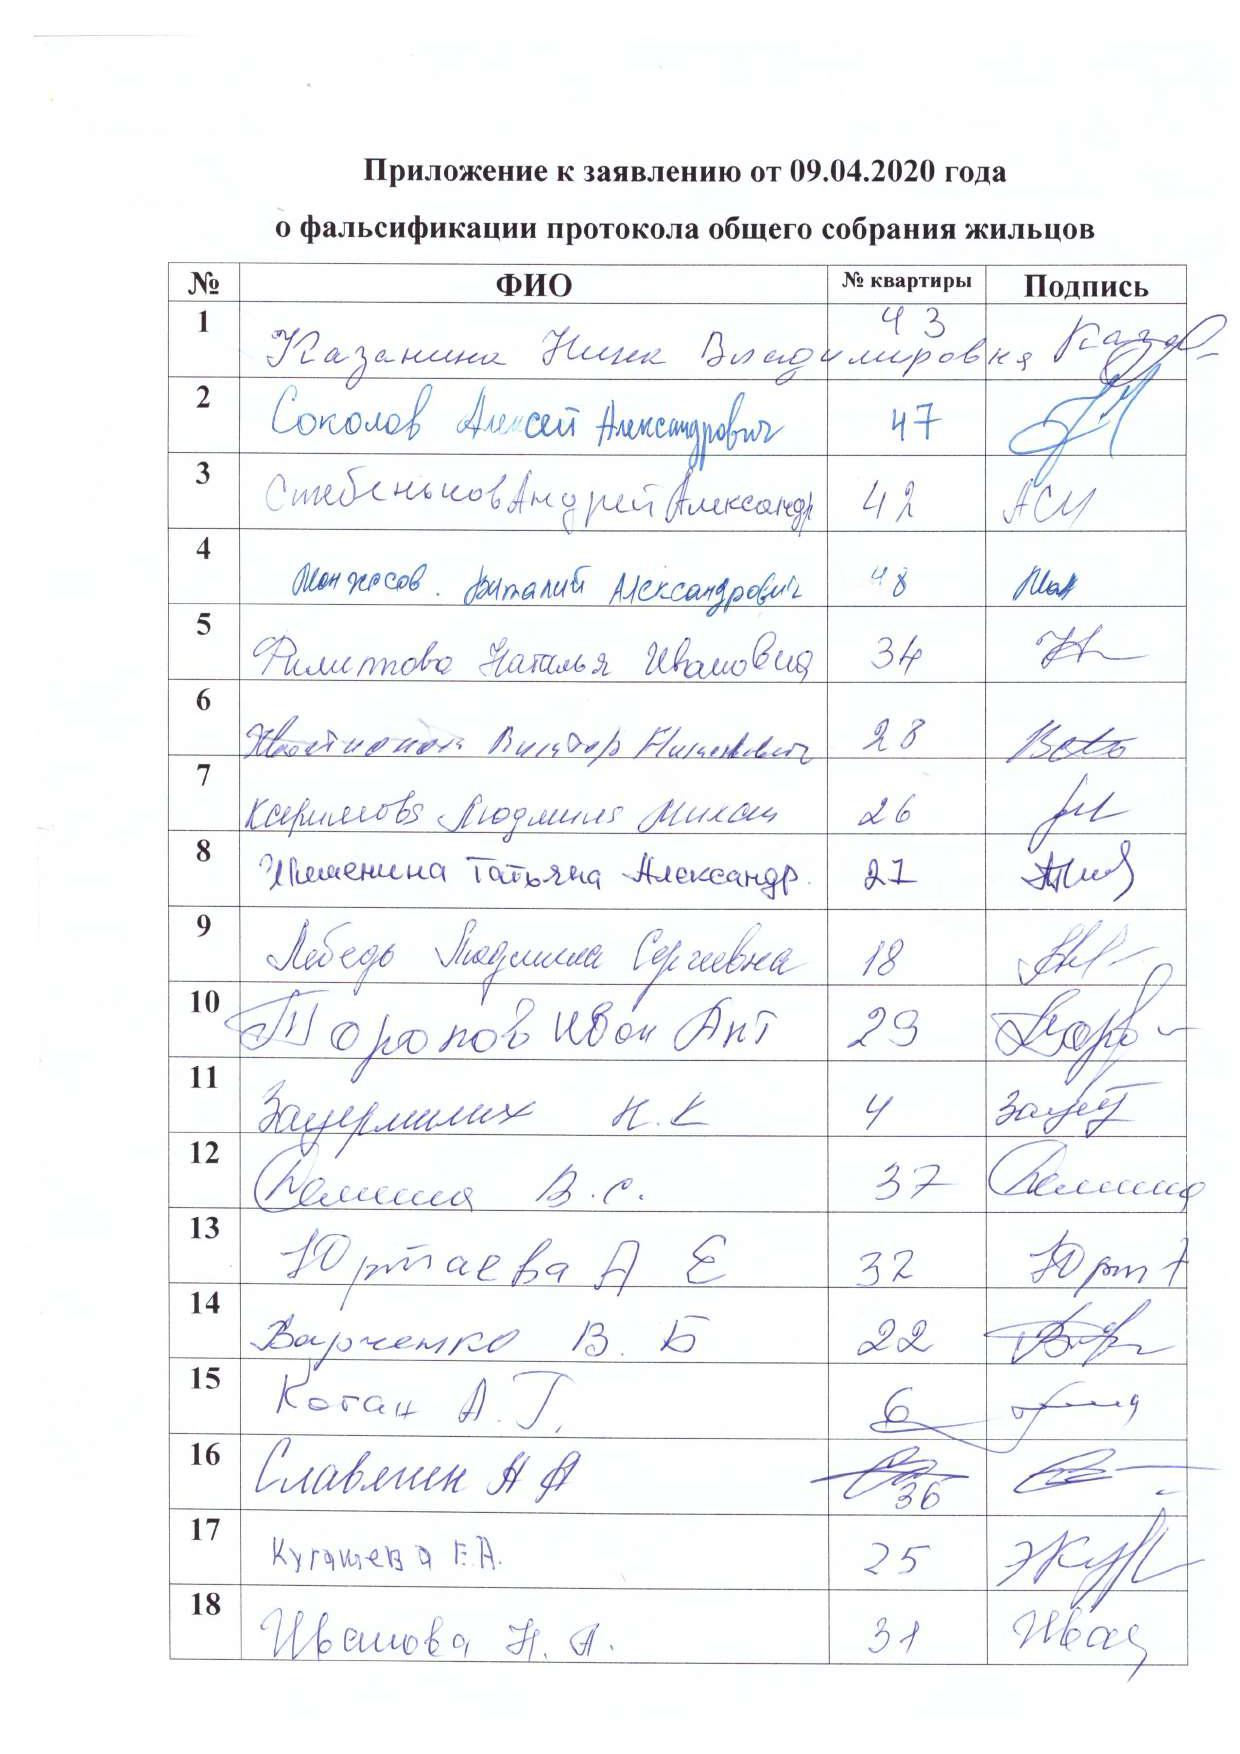 Приложение к заявлению от 09.04.2020 года
о фальсификации протокола общего собрания жильцов
№ ФИО № квартиры Подпись
1 Казанина Нина Владимировна 43
2 Соколов Алексей Александрович 47
3 Стебеньков Андрей Александр 42
4 Виталий Александрович 48
5 Филиппова Наталья Ивановна 34
6 Виктор 28
7 Людмила Михай 26
8 Татьяна Александр. 21
9 Лебедь Людмила Сергеевна 18
10 Торопов Иван Ант 29
11 Н.К 4
12 В.С. 37
13 Юртаева А Е 32
14 Варченко В. Б 22
15 Коган А.Г. 6
16 Славянин Н А 36
17 Кугашева Е.А. 25
18 Иванова Н. А. 31